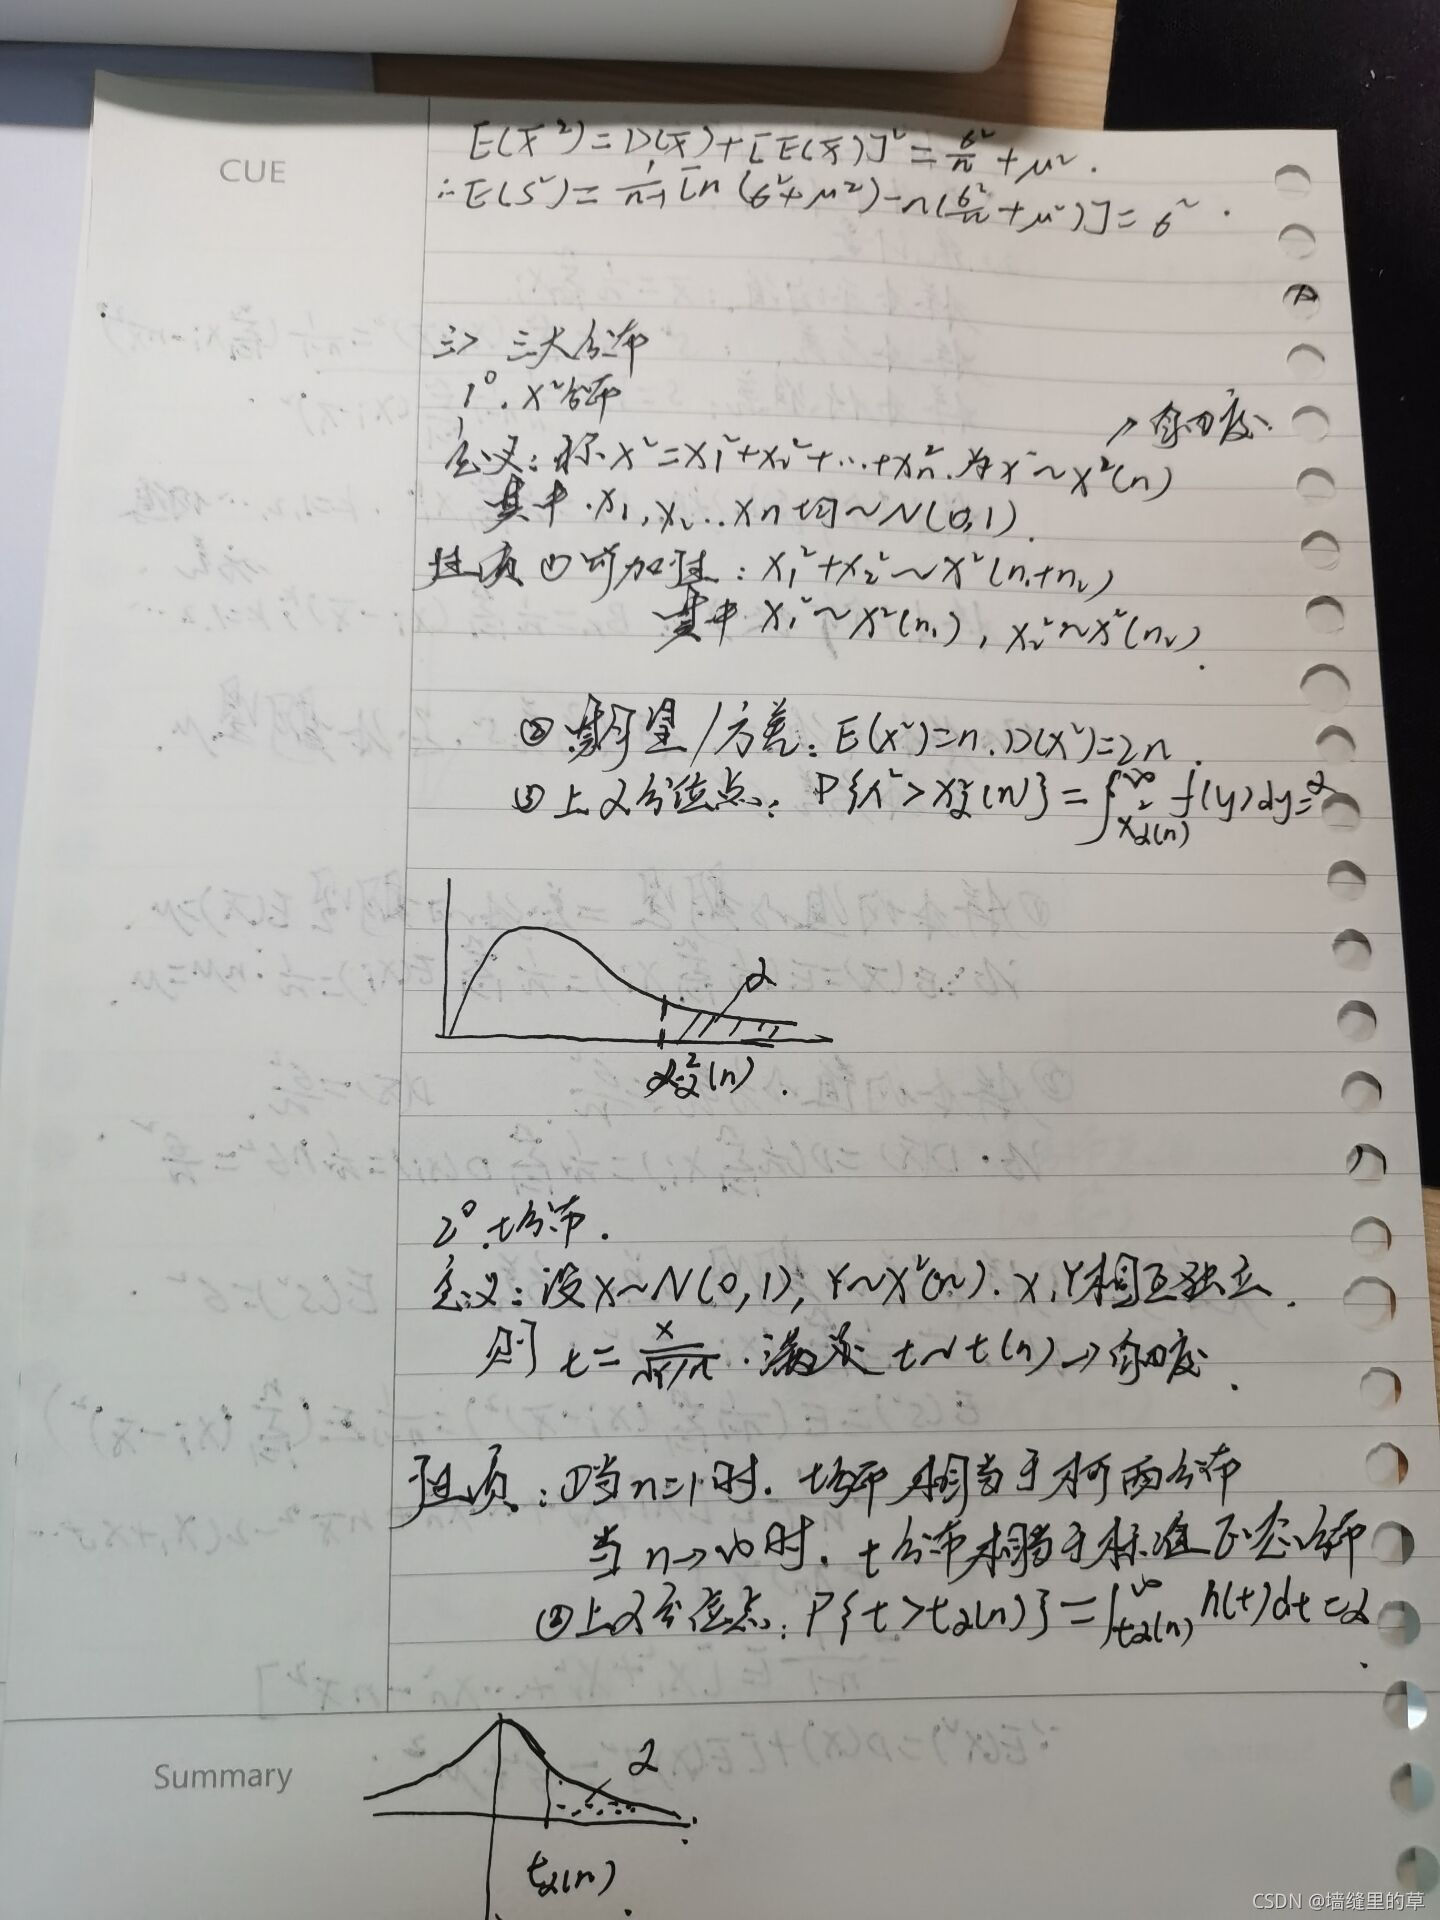 CUE
E(X̄²)=D(X̄)+[E(X̄)]²=σ²/n+μ².
∴E(S²)=1/(n-1)[n(σ²+μ²)-n(σ²/n+μ²)]=σ².
三> 三大分布
1°. X²分布
→自由度.
定义:称X²=X₁²+X₂²+…+Xn².为X²~X²(n)
其中.X₁,X₂..Xn均~N(0,1).
性质①可加性:X₁²+X₂²~X²(n₁+n₂)
其中X₁²~X²(n₁),X₂²~X²(n₂).
②期望/方差:E(X²)=n.D(X²)=2n.
③上α分位点:P{X²>Xα²(n)}=∫_{Xα²(n)}^{∞}f(y)dy=α
α
Xα²(n).
2°.t分布.
定义:设X~N(0,1),Y~X²(n).X,Y相互独立.
则t=X/√(Y/n).满足t~t(n)→自由度.
性质:①当n=1时.t分布相当于柯西分布
当n→∞时.t分布相当于标准正态分布
②上α分位点:P{t>tα(n)}=∫_{tα(n)}^{∞}h(t)dt=α.
Summary
α
tα(n).
CSDN @墙缝里的草